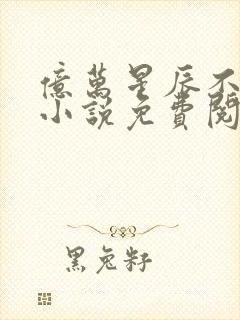 億萬星辰不
小說免費閱
黑兔籽